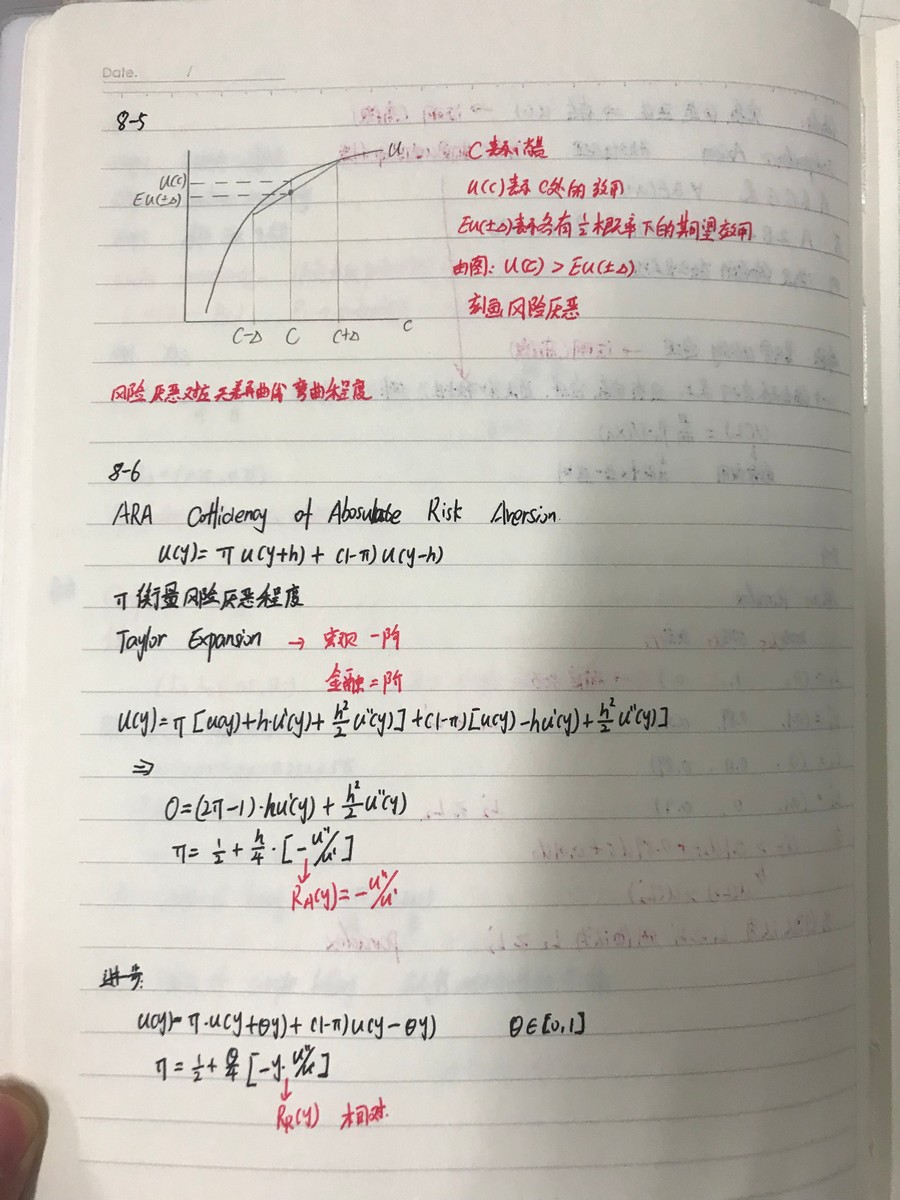 Date. /
8-5
u
U(c)
EU(±Δ)
C-Δ C C+Δ c
C表示消费
U(c)表示C处的效用
EU(±Δ)表示各有½概率下的期望效用
由图: U(c) > EU(±Δ)
刻画风险厌恶
风险厌恶对应 曲线弯曲程度
8-6
ARA of Risk Aversion.
U(y)= π u(y+h) + (1-π) u(y-h)
π 衡量风险厌恶程度
Taylor Expansion → 宏观 一阶
金融=阶
U(y)= π [u(y)+h·u'(y)+ h²/2 u''(y)] +(1-π)[u(y)-hu'(y)+ h²/2 u''(y)]
⇒
0=(2π-1)·hu'(y)+ h²/2 u''(y)
π= ½ + h/4 · [-u''/u']
↓
R_A(y)=-u''/u'
进一步:
u(y)=π·u(y+θy)+(1-π)u(y-θy) θ∈[0,1]
π = ½ + θ/4 [-y·u''/u']
↓
R_R(y) 相对.